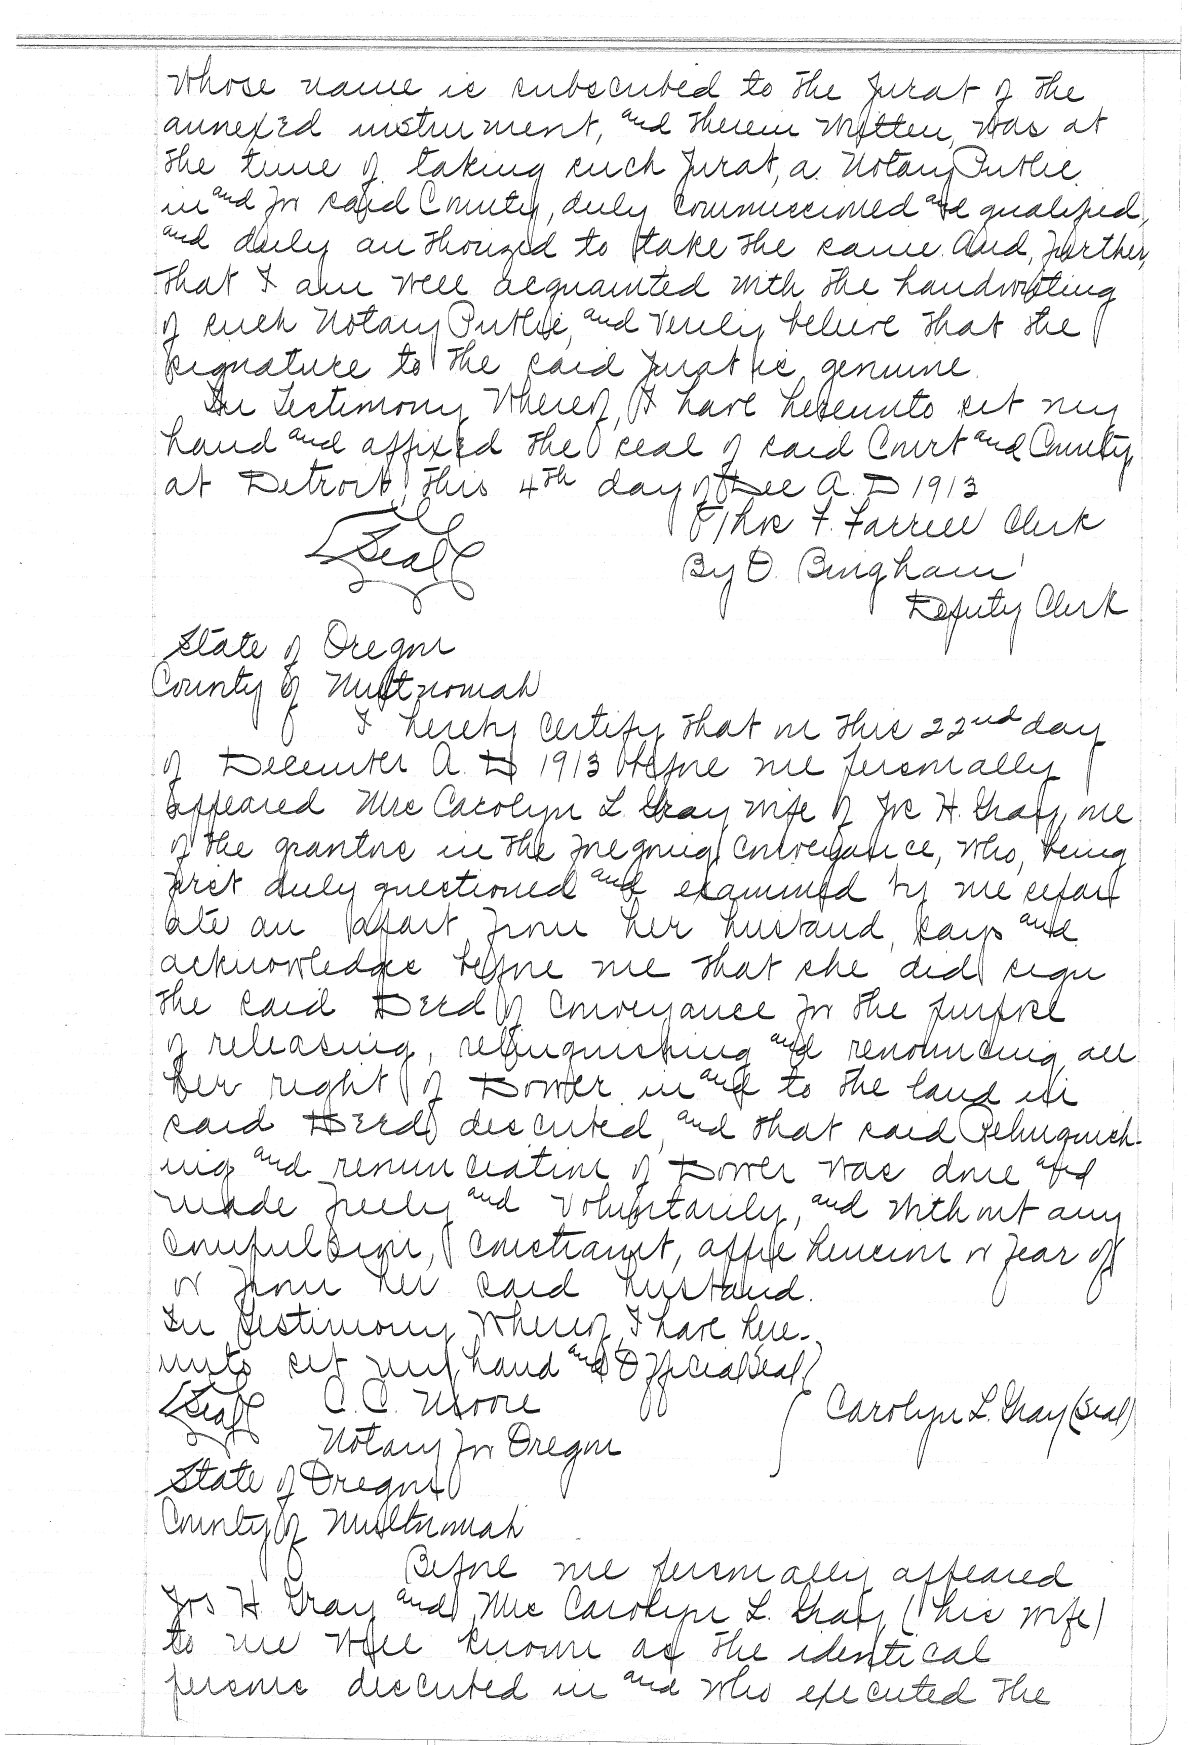 whose name is subscribed to the Jurat of the
annexed instrument, and therein written, was at
the time of taking such Jurat, a Notary Public
in and for said County, duly commissioned and qualified,
and duly authorized to take the same. And, further,
that I am well acquainted with the handwriting
of such Notary Public, and verily believe that the
signature to the said Jurat is genuine.
In Testimony Whereof, I have hereunto set my
hand and affixed the seal of said Court and County,
at Detroit, this 4th day of Dec A. D 1913
Thos F. Farrell Clerk
(Seal) By O. Bingham
Deputy Clerk
State of Oregon
County of Multnomah
I hereby certify that on this 22nd day
of December A. D 1913 before me personally
appeared Mrs Carolyn L Gray, wife of Jos H. Gray, one
of the grantors in the foregoing Conveyance, who, being
first duly questioned and examined by me separ
ate an apart from her husband, says and
acknowledges before me that she did sign
the said Deed of Conveyance for the purpose
of releasing, relinquishing and renouncing all
her right of Dower in and to the land in
said Deed described, and that said Relinquish-
ing and renunciation of Dower was done and
made freely and voluntarily, and without any
compulsion, constraint, apprehension or fear of
or from her said husband.
In Testimony Whereof, I have here-
unto set my hand and Official Seal
(Seal) C. C. Moore Carolyn L. Gray (Seal)
Notary for Oregon
State of Oregon
County of Multnomah
Before me personally appeared
Jos H Gray and Mrs Carolyn L. Gray (his wife)
to me well known as the identical
persons described in and who executed the